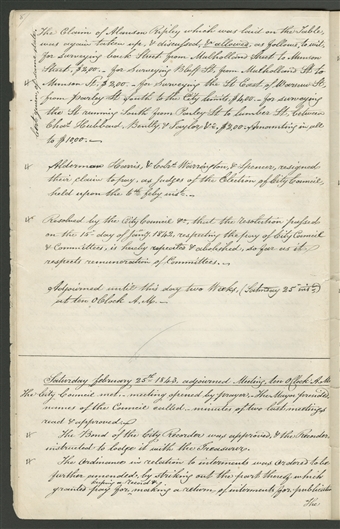 The Claim of Alanson Ripley which was laid on the Table,
was again taken up, & discussed, & allowed, as follows, to wit,
for surveying back Street from Mulhollands Street to Munson
Street. $2,00 – for surveying Bluff St. from Mulholland St to
Munson St. $2,00 – for surveying the St East of Warsaw St.
from Parley St South to the City limits, $4,00 – for surveying
the St running South from Parley St to Lumber St. between
Chast Hubbard, Bently, & Taylor &c, $2,00. Amounting in all
to $10,00.
Alderman Harris, & Cols. Warrington, & Spencer, resigned
their claim to pay, as judges of the Election of City Council,
held upon the 6th. feby inst.
Resolved by the City Council &c, that the resolution passed
on the 15th day of Jany, 1842, respecting the pay of City Council
& Committees, is hereby repealed & abolished, so far as it
respects remuneration of Committees.
Adjourned until this day two Weeks, (Saturday 25 inst.)
at ten O'Clock A.M.
Saturday February 25th 1843. adjourned Meeting, ten O'Clock A.M.
The City Council met – meeting opened by prayer. The Mayor presided
names of the Council called – minutes of two last meetings
read & approved.
The Bond of the City Recorder was approved, & the Recorder
instructed to lodge it with the Treasurer.
The Ordinance in relation to interments was ordered to be
further amended, by striking out this part thereof which
grants pay for making a return, of interments for publication
The